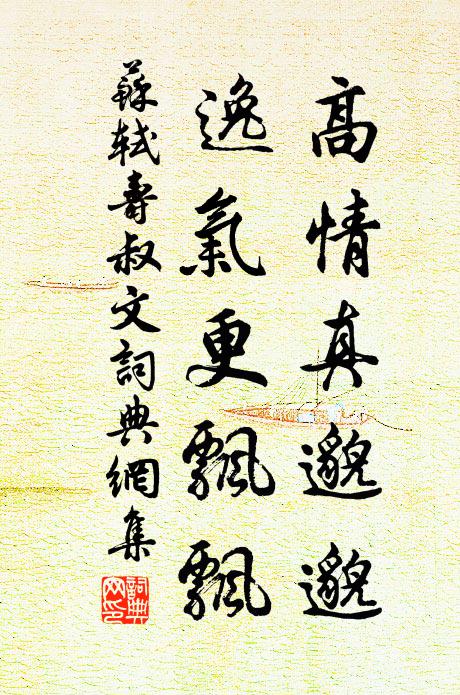 高情真邈邈
逸氣更飄飄
蘇軾壽叔文詞典網集
詞典
网印